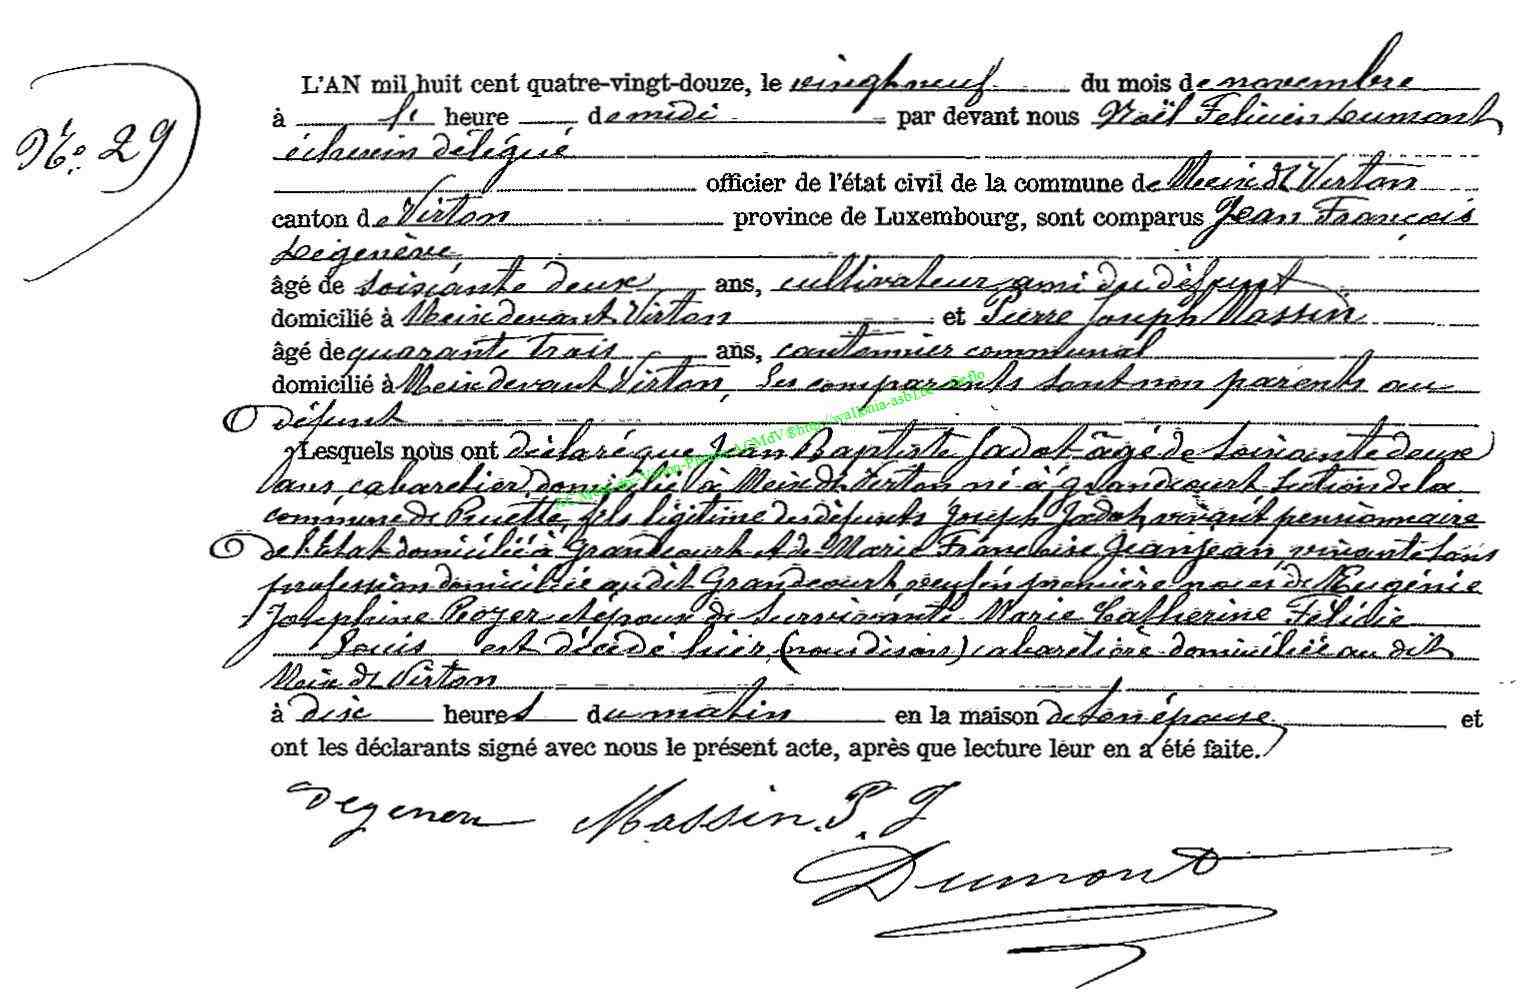 N°. 29
L'AN mil huit cent quatre-vingt-douze, le vinghneuf du mois de novembre
à heure de midi par devant nous Noël Felicien Dumont
échevin délégué
officier de l'état civil de la commune de Meix dt Virton
canton de Virton province de Luxembourg, sont comparus Jean François
Degenève
âgé de soixante deux ans, cultivateur ami du défunt
domicilié à Meix devant Virton et Pierre Joseph Massin
âgé de quarante trois ans, cantonnier communal
domicilié à Meix devant Virton, les comparants sont non parents au
défunt
Lesquels nous ont déclaré que Jean Baptiste Jadot âgé de soixante deux
ans, cabaretier, domicilié à Meix dt Virton né à Grandcourt section de la
commune de Ruette, fils légitime des défunts Joseph Jadot, vivant pensionnaire
de l'Etat domicilié à Grandcourt et de Marie Françoise Jeanjean vivante sans
profession domiciliée audit Grandcourt, veuf en première noces de Eugénie
Josephine Rozer et époux de survivante Marie Catherine Félicie
Louis est décédé hier (nous disons) cabaretière domiciliée au dit
Meix dt Virton
à dix heures du matin en la maison de son épouse et
ont les déclarants signé avec nous le présent acte, après que lecture leur en a été faite.
Degeneve Massin. P. J
Dumont